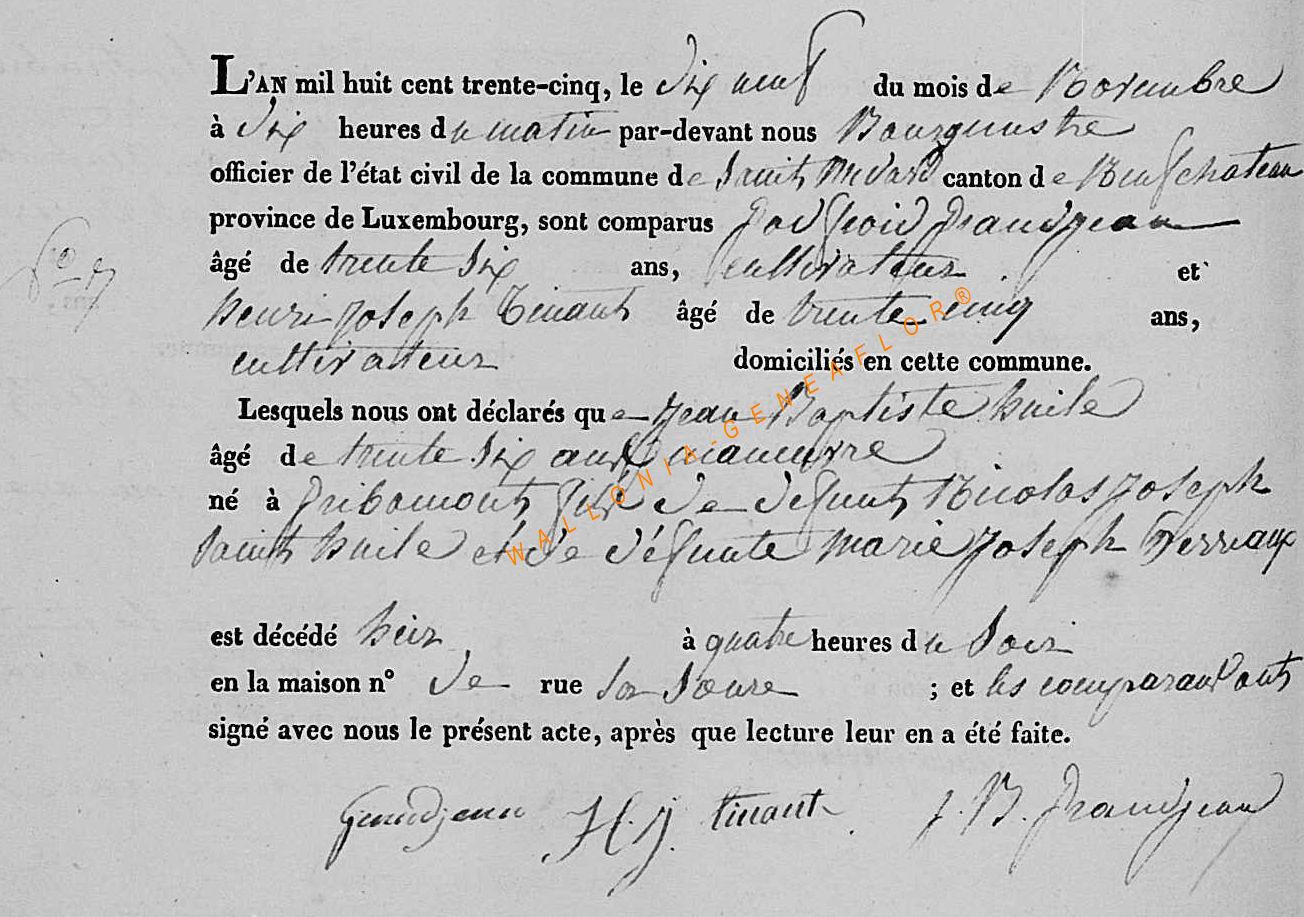 L'AN mil huit cent trente-cinq, le dix neuf du mois de Novembre
à dix heures du matin par-devant nous Bourguestre
officier de l'état civil de la commune de Saint Médard canton de Neufchateau
province de Luxembourg, sont comparus Godfroid Grandjean
âgé de trente six ans, cultivateur et
henri joseph Tinant âgé de trente cinq ans,
cultivateur domiciliés en cette commune.
Lesquels nous ont déclarés que jean Baptiste huile
âgé de trente six ans manœuvre
né à gribomont fils de defunt Nicolas joseph
Saint huile et de défunte marie joseph
est décédé hier à quatre heures du Soir
en la maison n° de rue sa Sœure ; et les comparant ont
signé avec nous le présent acte, après que lecture leur en a été faite.
Grandjean H. J. tinant J. B. Grandjean
WALLONIA-GENEAFLOR®